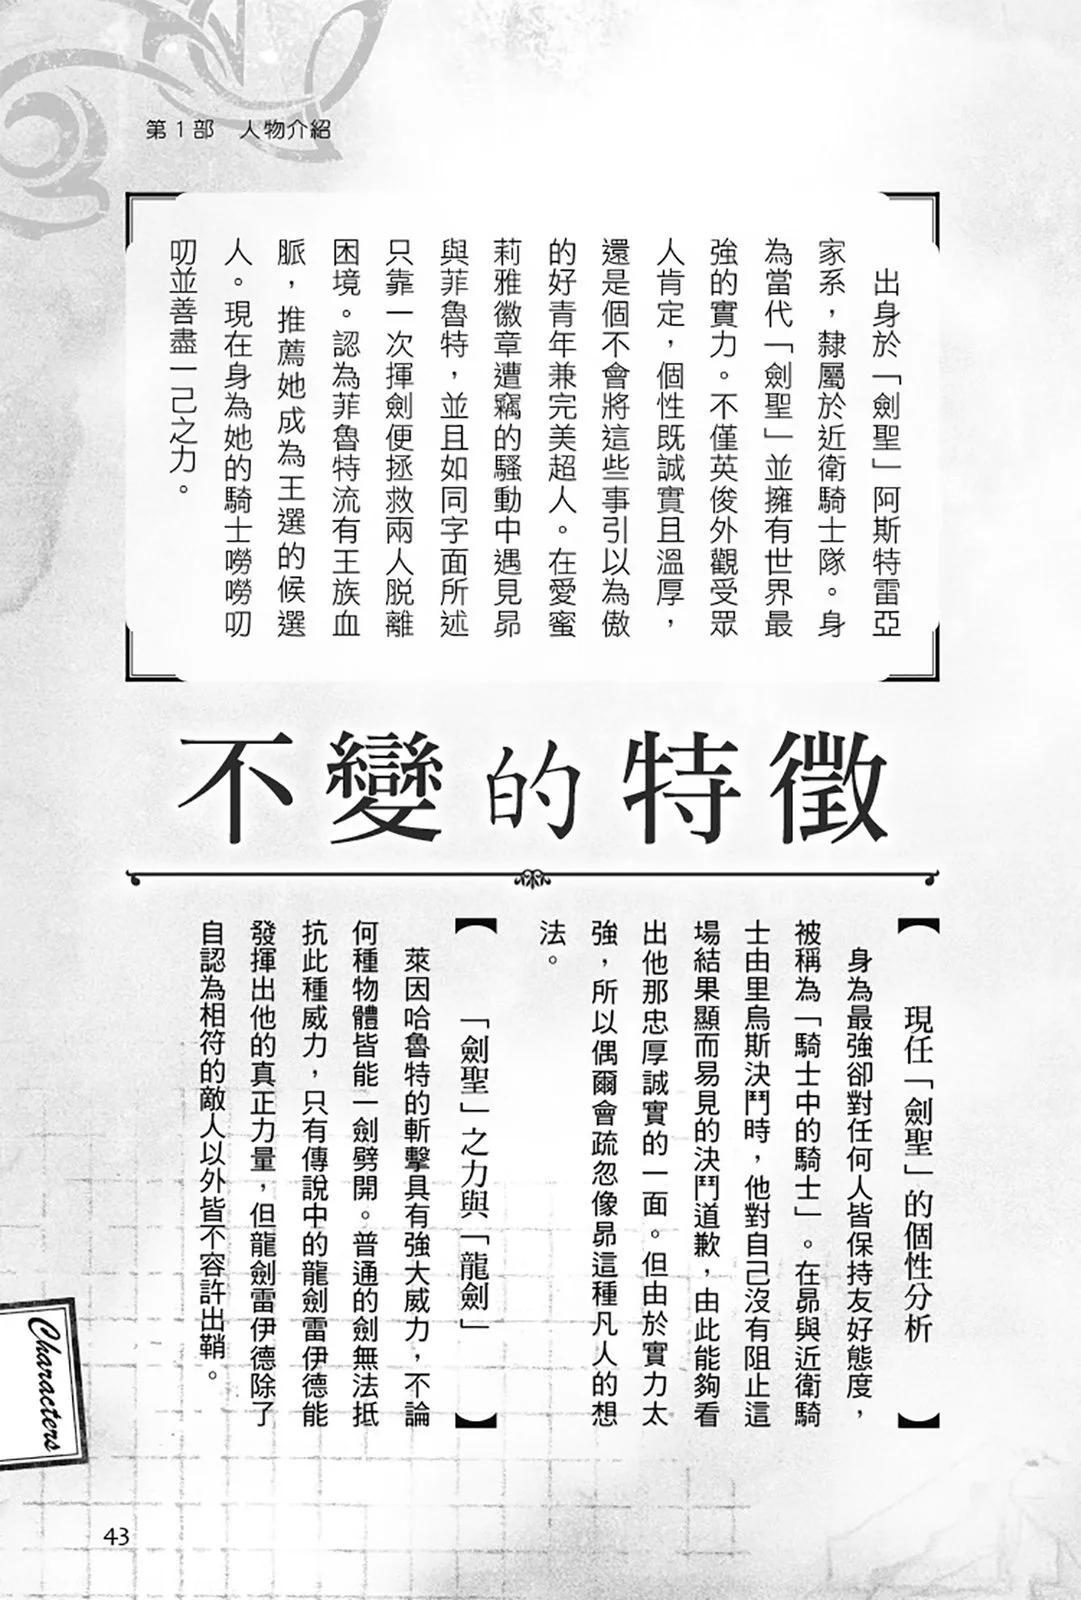 第1部 人物介紹
出身於「劍聖」阿斯特雷亞
家系，隸屬於近衛騎士隊。身
為當代「劍聖」並擁有世界最
強的實力。不僅英俊外觀受眾
人肯定，個性既誠實且溫厚，
還是個不會將這些事引以為傲
的好青年兼完美超人。在愛蜜
莉雅徽章遭竊的騷動中遇見昴
與菲魯特，並且如同字面所述
只靠一次揮劍便拯救兩人脫離
困境。認為菲魯特流有王族血
脈，推薦她成為王選的候選
人。現在身為她的騎士嘮嘮叨
叨並善盡一己之力。
不變的特徵
【現任「劍聖」的個性分析】
身為最強卻對任何人皆保持友好態度，
被稱為「騎士中的騎士」。在昴與近衛騎
士由里烏斯決鬥時，他對自己沒有阻止這
場結果顯而易見的決鬥道歉，由此能夠看
出他那忠厚誠實的一面。但由於實力太
強，所以偶爾會疏忽像昴這種凡人的想
法。
【「劍聖」之力與「龍劍」】
萊因哈魯特的斬擊具有強大威力，不論
何種物體皆能一劍劈開。普通的劍無法抵
抗此種威力，只有傳說中的龍劍雷伊德能
發揮出他的真正力量，但龍劍雷伊德除了
自認為相符的敵人以外皆不容許出鞘。
Characters
43